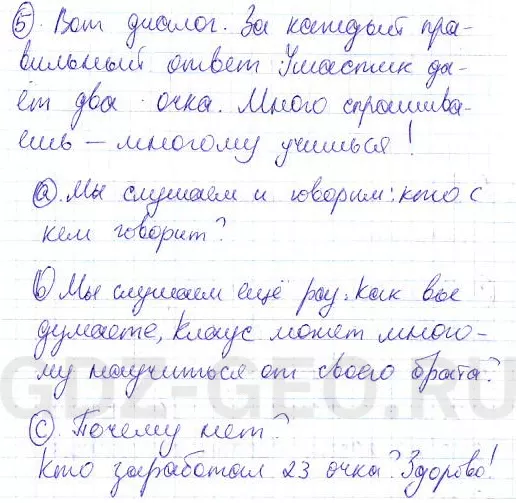 ⑤. Вот диалог. За каждый пра-
вильный ответ Ушастик да-
ёт два очка. Много спрашива-
ешь – многому учишься!
ⓐ. Мы слушаем и говорим: кто с
кем говорит?
ⓑ Мы слушаем ещё раз. Как вы
думаете, Клаус может много-
му научиться от своего брата?
ⓒ. Почему нет?
Кто заработал 23 очка? Здорово!
GDZ-GEO.RU